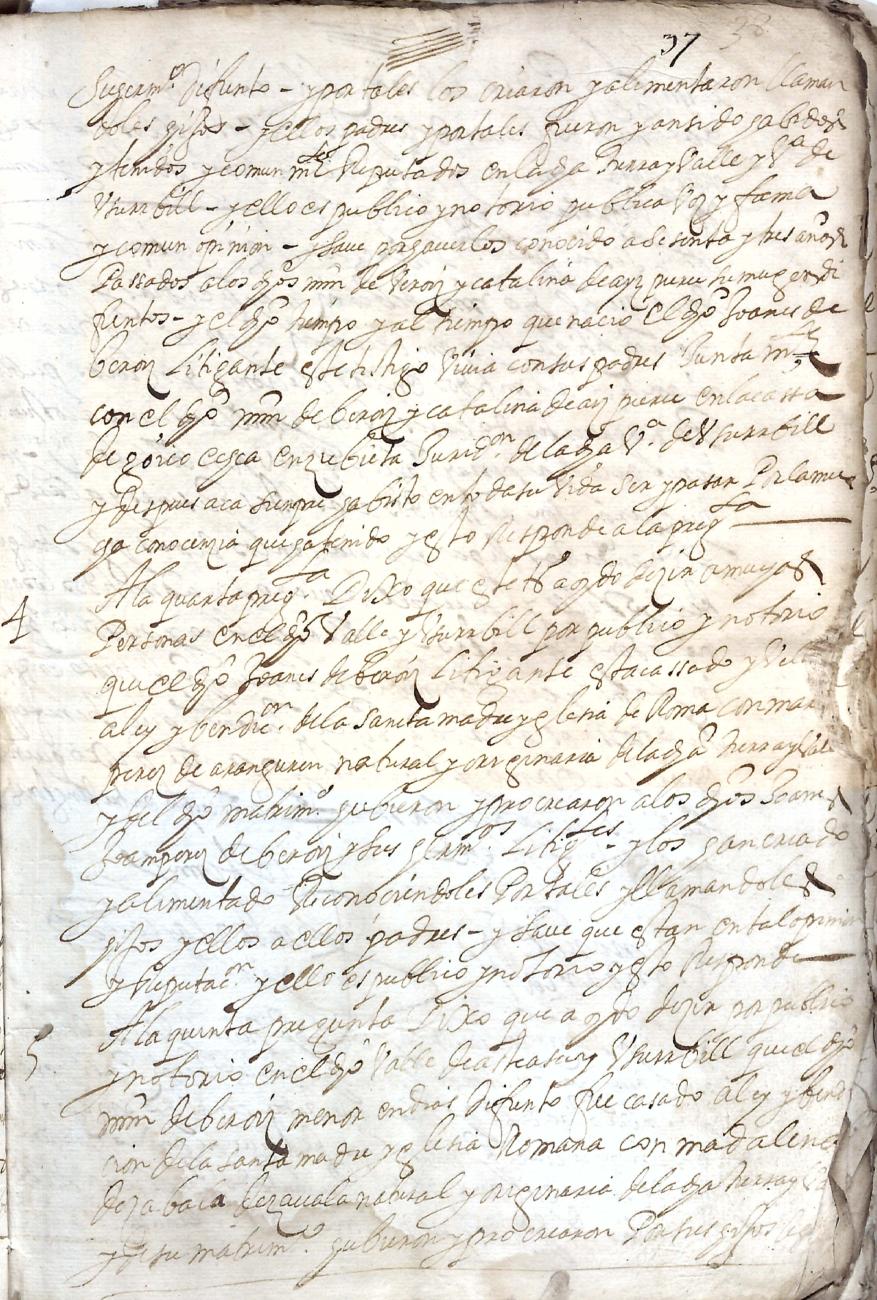 37 38
Sugerm.º difunto - y por tales los criaron y alimentaron llaman
doles gijos - y ellos padres y por tales fueron y an sido gabidos
y tenidos y comunm.te Reputados en la dga tierra y Valle y V.ª de
Vsurbill - y ello es publico y notorio publica Voz y fama
y comun opinion - y save por gaverlos conocido a sesenta y tres años
Passados a los dgos mrn de Veroiz y catalina de ayzpuru su muger di
funtos - y el dgo tiempo y al tiempo que nacio el dgo Joanes de
beroiz Litigante este testigo Vivia con sus padres Junta m.te
con el dgo mrn de beroiz y catalina de ayzpurue en la cassa
de goicoecgea en çubieta Jurid.on de la dga V.ª de Vsurbill
y despues aca siempre ga bisto en toda su Vida ser y pasar Por la muc
ga conocenzia que ga tenido y esto Responde a la preg.ta
4 A la quarta preg.ta Dixo que este t.º a oydo dezir a muchas
Personas en el dgo Valle y Vsurbill por publico y notorio
que el dgo Joanes de beroiz Litigante esta cassado y Vela
a ley y bendic.on de la sancta madre yglesia de Roma con mar
perez de aranguren natural y originaria de la dga tierra y Valle
y del dgo matrim.º gubieron y procrearon a los dgos Joanes
Joamperez de beroiz y sus germ.os Litig.tes - y los gan criado
y alimentado Reconociendoles Por tales y llamandoles
gijos y ellos a ellos padres - y save que estan en tal opinion
y Reputac.on y ello es publico y notorio y esto Responde
5 A la quinta pregunta Dixo que a oydo dezir por publico
y notorio en el dgo Valle de asteasu y Vsurbill que el dgo
mrn de beroiz menor en dias Difunto fue casado a ley y bendi
cion de la santa madre yglesia Romana con madalena
de natural y originaria de la dga tierra y
y de su matrim.º gubieron y procrearon Por sus gijos